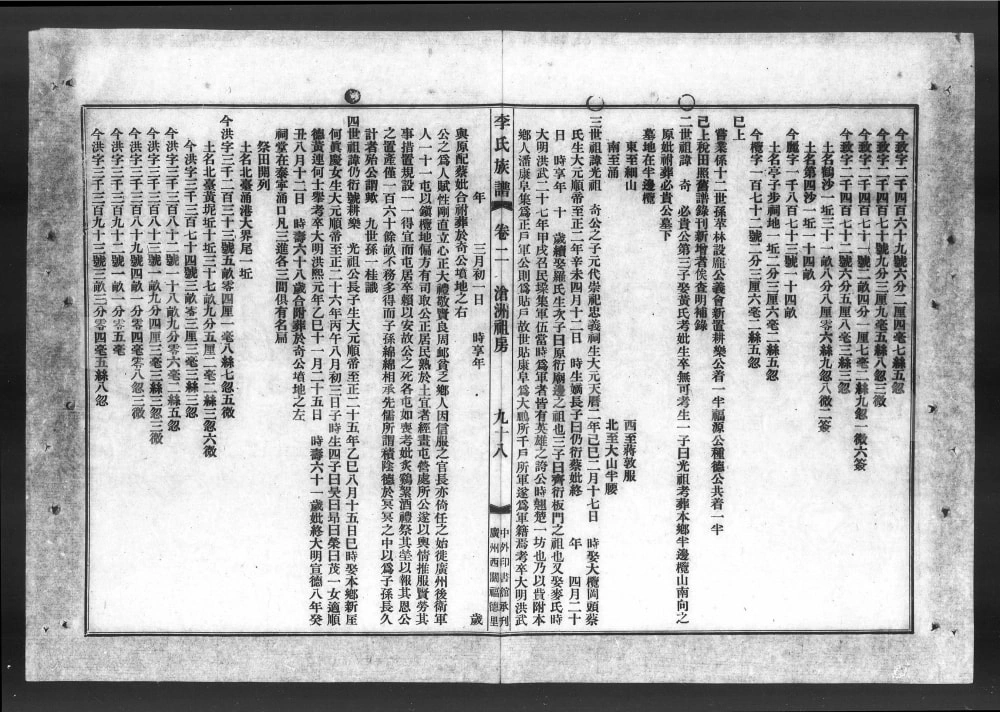 今敎字二千四百六十九號六分二厘四毫七絲五忽
今敎字二千四百七十號九分三厘九毫五絲八忽三微
今敎字二千四百七十一號一分一厘七毫二絲九忽一微六簽
今敎字二千四百七十二號六分五厘八毫三絲三忽
土名鶴沙一坵三十一畝八分八厘零六絲九忽八微二簽
土名第四沙一坵二十四畝
今麗字一千八百七十三號一十四畝
土名亭子步祠地一坵二分三厘六毫二絲五忽
今欖字一百七十二號二分三厘六毫二絲五忽
已上
嘗業係十二世孫萃林設龐公義會新置耕樂公着一半福源公種德公共着一半
已上稅田照舊譜錄刊新增者俟查明補錄
二世祖諱 奇 必貴公第三子娶黃氏考妣生卒無可考生一子曰光祖考葬本鄉半邊欖山南向之
原妣祔葬必貴公墓下
墓地在半邊欖
東至細山 西至蔣敦服
南至涌 北至大山半腰
三世祖諱光祖 奇公之子元代崇祀忠義祠生大元天曆二年己巳二月十七日 時娶大欖岡頭蔡
氏生大元順帝至正二年辛未四月十二日 時生嫡長子曰仍衍蔡妣終 年 四月二十
日 時享年 十 歲續娶羅氏生次子曰原衍廟邊之祖也三子曰齊衍板門之祖也又娶麥氏時
大明洪武二十七年甲戌召民壕集軍伍當時爲軍者皆有英雄之誇公時翹楚一坊也乃以貲附本
鄉人潘康阜集爲正戶軍公則爲貼戶故世貼康阜爲大鵬所千戶所軍遂爲軍籍焉考卒大明洪武
李氏族譜 卷二 滄洲祖房 九十八
中外印書館承刋
廣州西關福德里
年 三月初一日 時享年 歲
與原配蔡妣合祔葬於奇公墳地之右
公之爲人賦性剛直立心正大禮敬賢良周邮貧乏鄉人因信服之官長亦倚任之始徙廣州後衞軍
人一十一屯以鎭欖地偏方有司取公正居民熟於土宜者經畫屯營處所公遂以輿情推服賢勞其
事措置規設一一得宜而屯居卒賴以安故公之死各屯如喪考妣炙鷄絮酒禮祭其塋以報其恩公
之置產僅一百六十餘畝不務多得而子孫綿綿相承先儒所謂積陰德於冥冥之中以爲子孫長久
計者殆公謂歟 九世孫 桂 識
四世祖諱仍衍號耕樂 光祖公長子生大元順帝至正二十五年乙巳八月十五日巳時娶本鄉新厓
何眞慶女生大元順帝至正二十六年丙午八月初三日子時生四子曰炅曰昻曰榮曰茂一女適順
德黃連何士舉考卒大明洪熙元年乙巳十一月二十五日 時壽六十一歲妣終大明宣德八年癸
丑八月十二日 時壽六十八歲合附葬於奇公墳地之左
祠堂在泰寧涌口凡三進各三間俱有名扁
祭田開列
土名北臺涌港大界尾一坵
今洪字三千二百三十三號五畝零四厘一毫八絲七忽五微
土名北臺黃坭坵十坵三十七畝九分五厘二毫二絲三忽六微
今洪字三千三百七十四號三畝零三厘三毫三絲三忽
今洪字三千三百八十二號一十八畝九分零六毫二絲五忽
今洪字三千三百八十三號一畝九分四厘三毫三絲三忽三微
今洪字三千三百九十號四畝一分零四毫零八忽三微
今洪字三千三百九十二號一畝一分零五毫
今洪字三千三百九十三號三畝三分零四毫五絲八忽